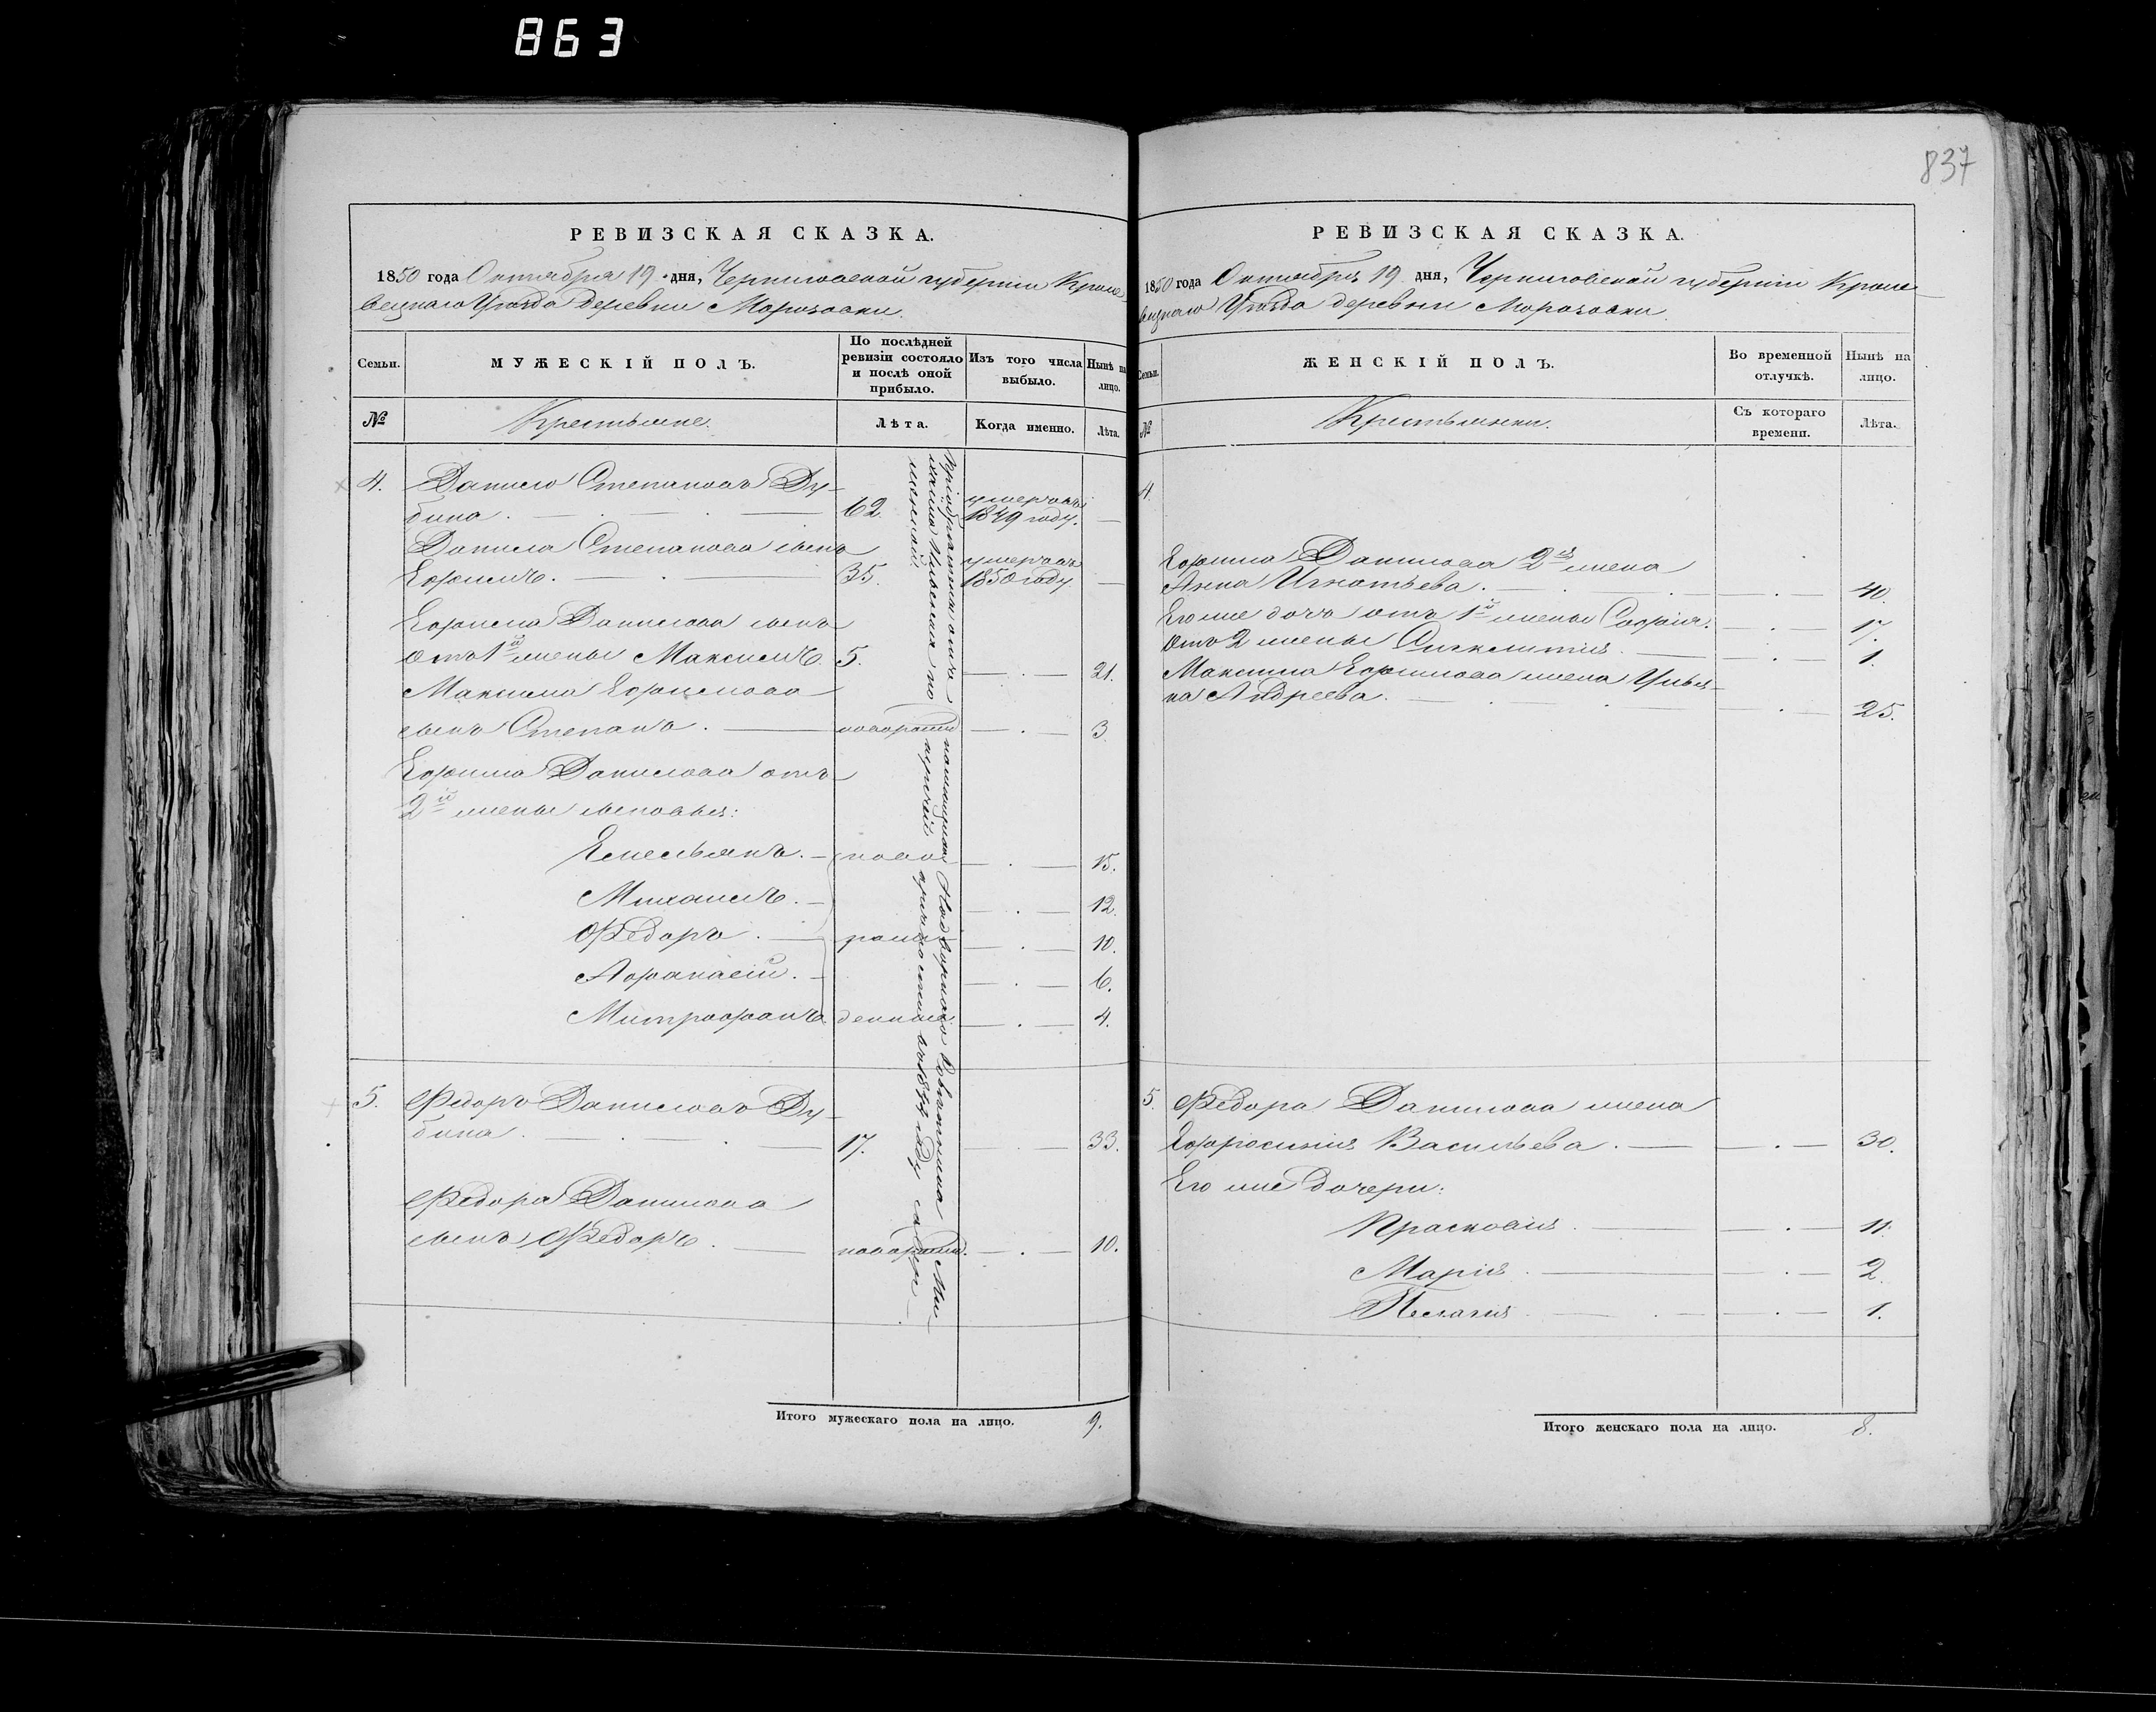 863
837
РЕВИЗСКАЯ СКАЗКА.
1850 года Октября 19 дня, Черниговской губернии Кроле-
вецкаго Уѣзда деревни Морозовки.
Семьи. МУЖЕСКІЙ ПОЛЪ. По послѣдней ревизіи состояло и послѣ оной прибыло. Изъ того числа выбыло. Нынѣ на лицо.
№ Крестьяне. Лѣта. Когда именно. Лѣта.
4. Данило Степановъ Ду- умершъ
бина. 62. 1849 году.
Данила Степанова сынъ умершъ
Ефимъ. 35. 1850 году
Ефима Данилова сынъ
отъ 1й жены Максимъ. 5. 21.
Максима Ефимова
сынъ Степанъ. новорожд 3.
Ефима Данилова отъ
2й жены сыновья:
Емельянъ. ново 15.
Михаилъ. 12.
Ѳедоръ. рож 10.
Афанасій. 6.
Митрофанъ. денные 4.
5. Ѳедоръ Даниловъ Ду-
бина. 17. 33.
Ѳедора Данилова
сынъ Ѳедоръ. новорожд. 10.
помѣщицею Надворнаго Совѣтника Ми-
Итого мужескаго пола на лицо. 9.
РЕВИЗСКАЯ СКАЗКА.
1850 года Октября 19 дня, Черниговской губерніи Кроле-
вецкаго Уѣзда деревни Морозовки.
Семьи. ЖЕНСКІЙ ПОЛЪ. Во временной отлучкѣ. Нынѣ на лицо.
№ Крестьянки. Съ котораго времени. Лѣта.
4.
Ефима Данилова 2я жена
Анна Игнатьева. 40.
Его же дочь отъ 1й жены Софія. 17.
отъ 2 жены 1.
Максима Ефимова жена Улья-
на Андреева. 25.
5. Ѳедора Данилова жена
Ефросинія Васильева. 30.
Его же дочери:
Прасковія. 11.
Марія. 2.
Пелагія 1.
Итого женскаго пола на лицо. 8.